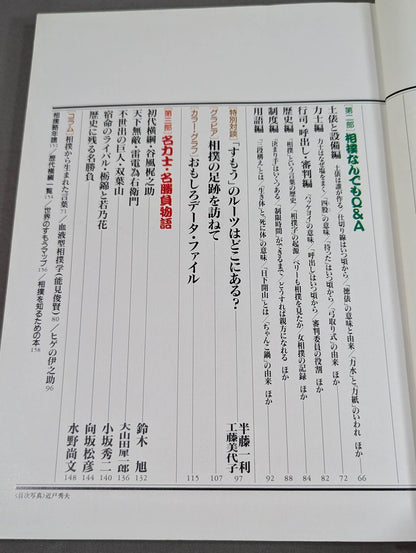 第二部 相撲なんでもQ&A
土俵と設備編 66
土俵は誰が作る/仕切り線はいつ頃から/「徳俵」の意味と由来/「力水」と「力紙」のいわれ ほか
力士編 72
力士はなぜ塩をまく/「四股」の意味/「待った」はいつ頃から/「弓取り式」の由来 ほか
行司・呼出し・審判編 82
「ハッケヨイ」の意味/「呼出し」はいつ頃から/審判委員の役割 ほか
歴史編 84
「相撲」という言葉の歴史/「相撲子」の起源/ペリーも相撲を見たか/女相撲の記録 ほか
制度編 88
「決まり手」はいくつある/「制限時間」ができるまで/どうすれば親方になれる ほか
用語編 92
「三段構え」とは/「生き体」と「死に体」の意味/「日下開山」とは/「ちゃんこ鍋」の由来 ほか
特別対談 「すもう」のルーツはどこにある? 半藤一利 工藤美代子 97
グラビア 相撲の足跡を訪ねて 107
カラー・グラフ おもしろデータ・ファイル 115
第三部 名力士・名勝負物語
初代横綱・谷風梶之助 鈴木 旭 132
天下無敵・雷電為右衛門 大山田犀一郎 136
不世出の巨人・双葉山 小坂秀二 140
宿命のライバル・栃錦と若乃花 向坂松彦 144
歴史に残る名勝負 水野尚文 148
コラム 相撲から生まれた言葉 71/血液型相撲学(能見俊賢) 80/ヒゲの伊之助 96
相撲略年譜 152/歴代横綱一覧 154/世界のすもうマップ 156/相撲を知るための本 158
〈目次写真〉近戸秀夫